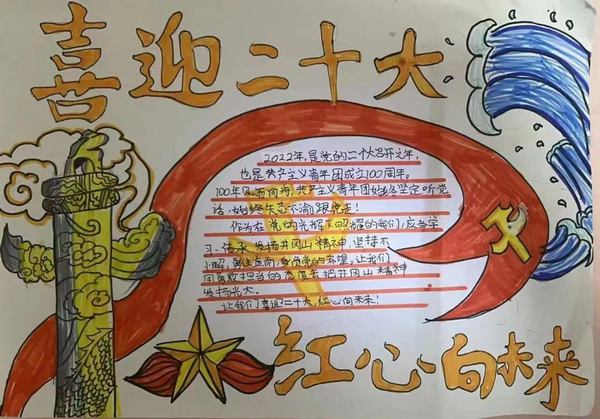 喜迎二十大
2022年,是党的二十大召开之年,
也是共产主义青年团成立100周年。
100年风雨同舟,共产主义青年团始终坚定听党
话,始终矢志不渝跟党走!
作为在党的光辉下照耀的我们,应当学
习、传承、发扬井冈山精神,坚持不
懈,勇往直前,党的希望,让我们
用勇敢担当的态度去把井冈山精神
发扬光大。
让我们喜迎二十大,红心向未来!
红心向未来